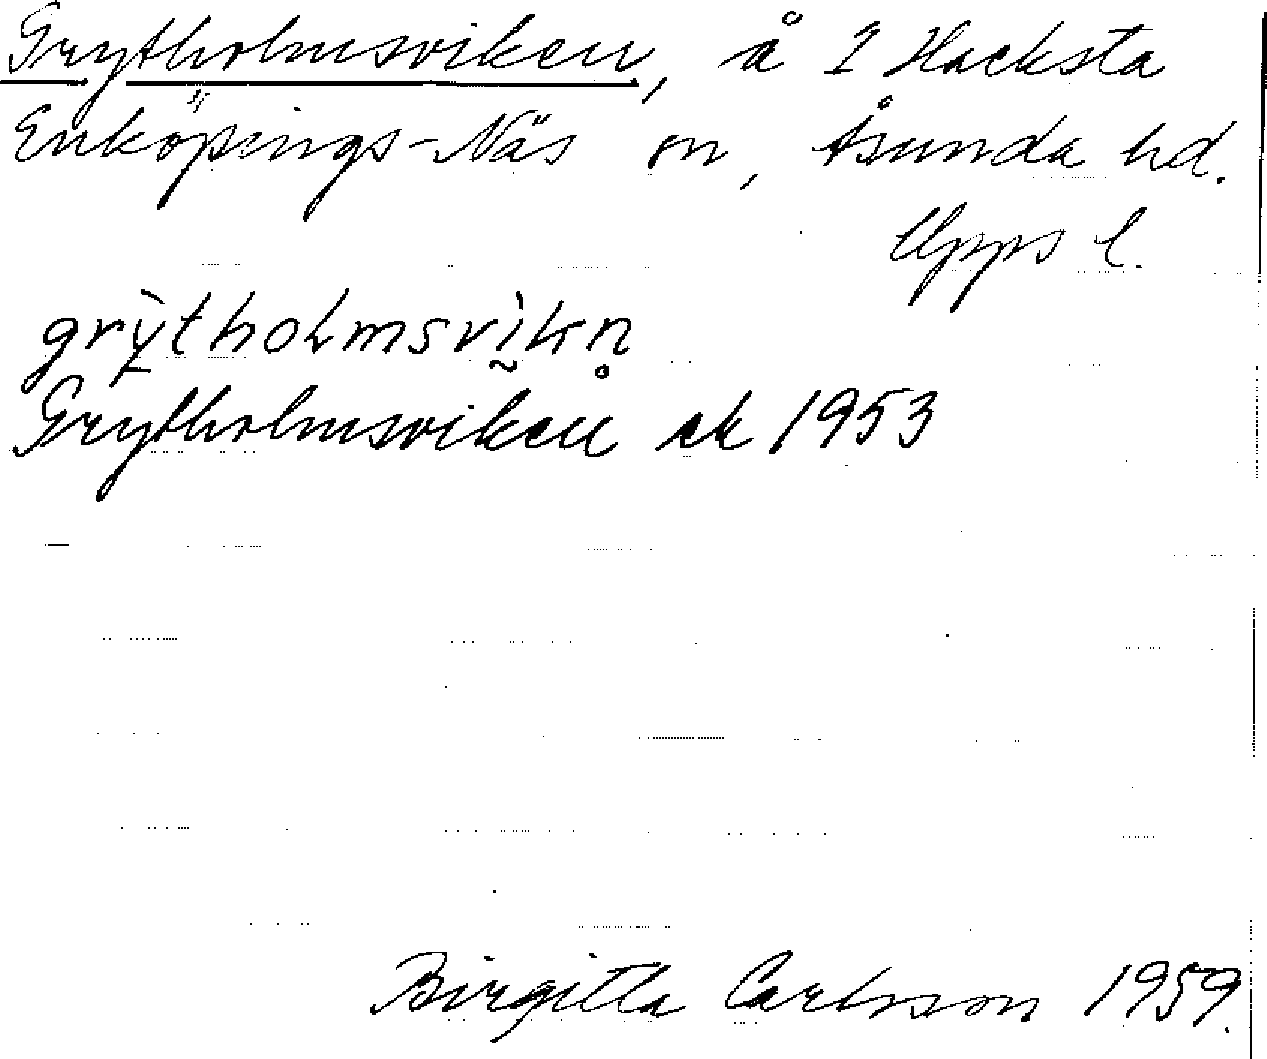 Grytholmsviken, å I Hacksta
Enköpings-Näs sn, Åsunda hd.
Upps l.
grỳtholmsvìkn̥
Grytholmsviken ek 1953
Birgitta Carlsson 1959.